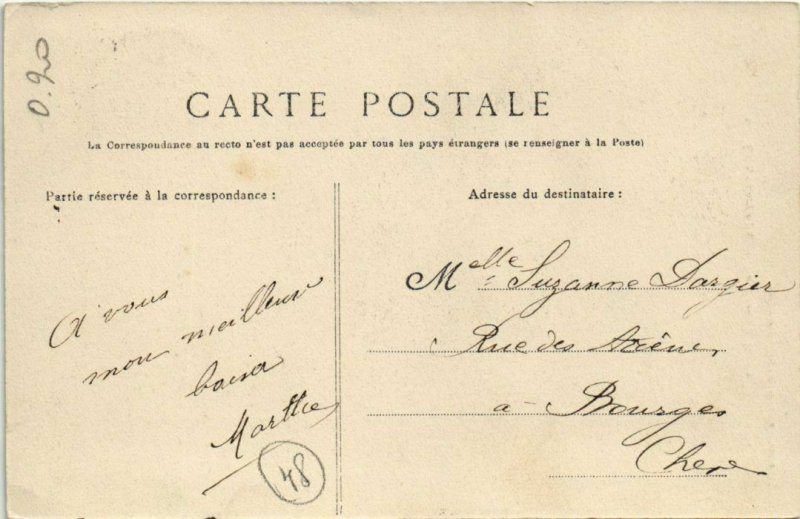 0.90
CARTE POSTALE
La Correspondance au recto n'est pas acceptée par tous les pays étrangers (se renseigner à la Poste)
Partie réservée à la correspondance :
A vous
mon meilleur
baiser
Marthe
48
Adresse du destinataire :
Melle Suzanne Dargier
Rue des Arène,
a - Bourges
Cher